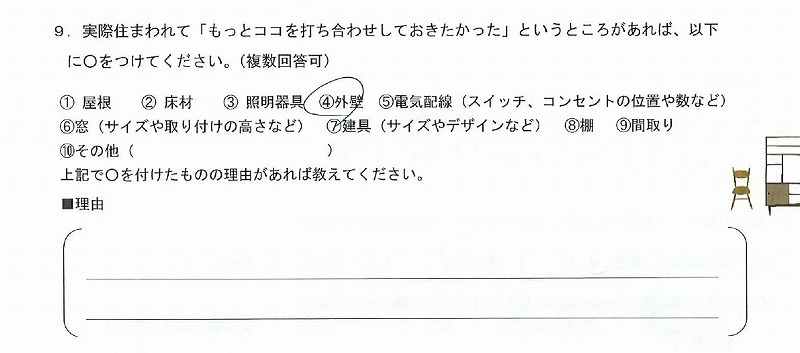 9．実際住まわれて「もっとココを打ち合わせしておきたかった」というところがあれば、以下
に〇をつけてください。（複数回答可）
① 屋根　② 床材　③ 照明器具　④外壁　⑤電気配線（スイッチ、コンセントの位置や数など）
⑥窓（サイズや取り付けの高さなど）　⑦建具（サイズやデザインなど）　⑧棚　⑨間取り
⑩その他（　　　　　　　　　　　　）
上記で〇を付けたものの理由があれば教えてください。
■理由